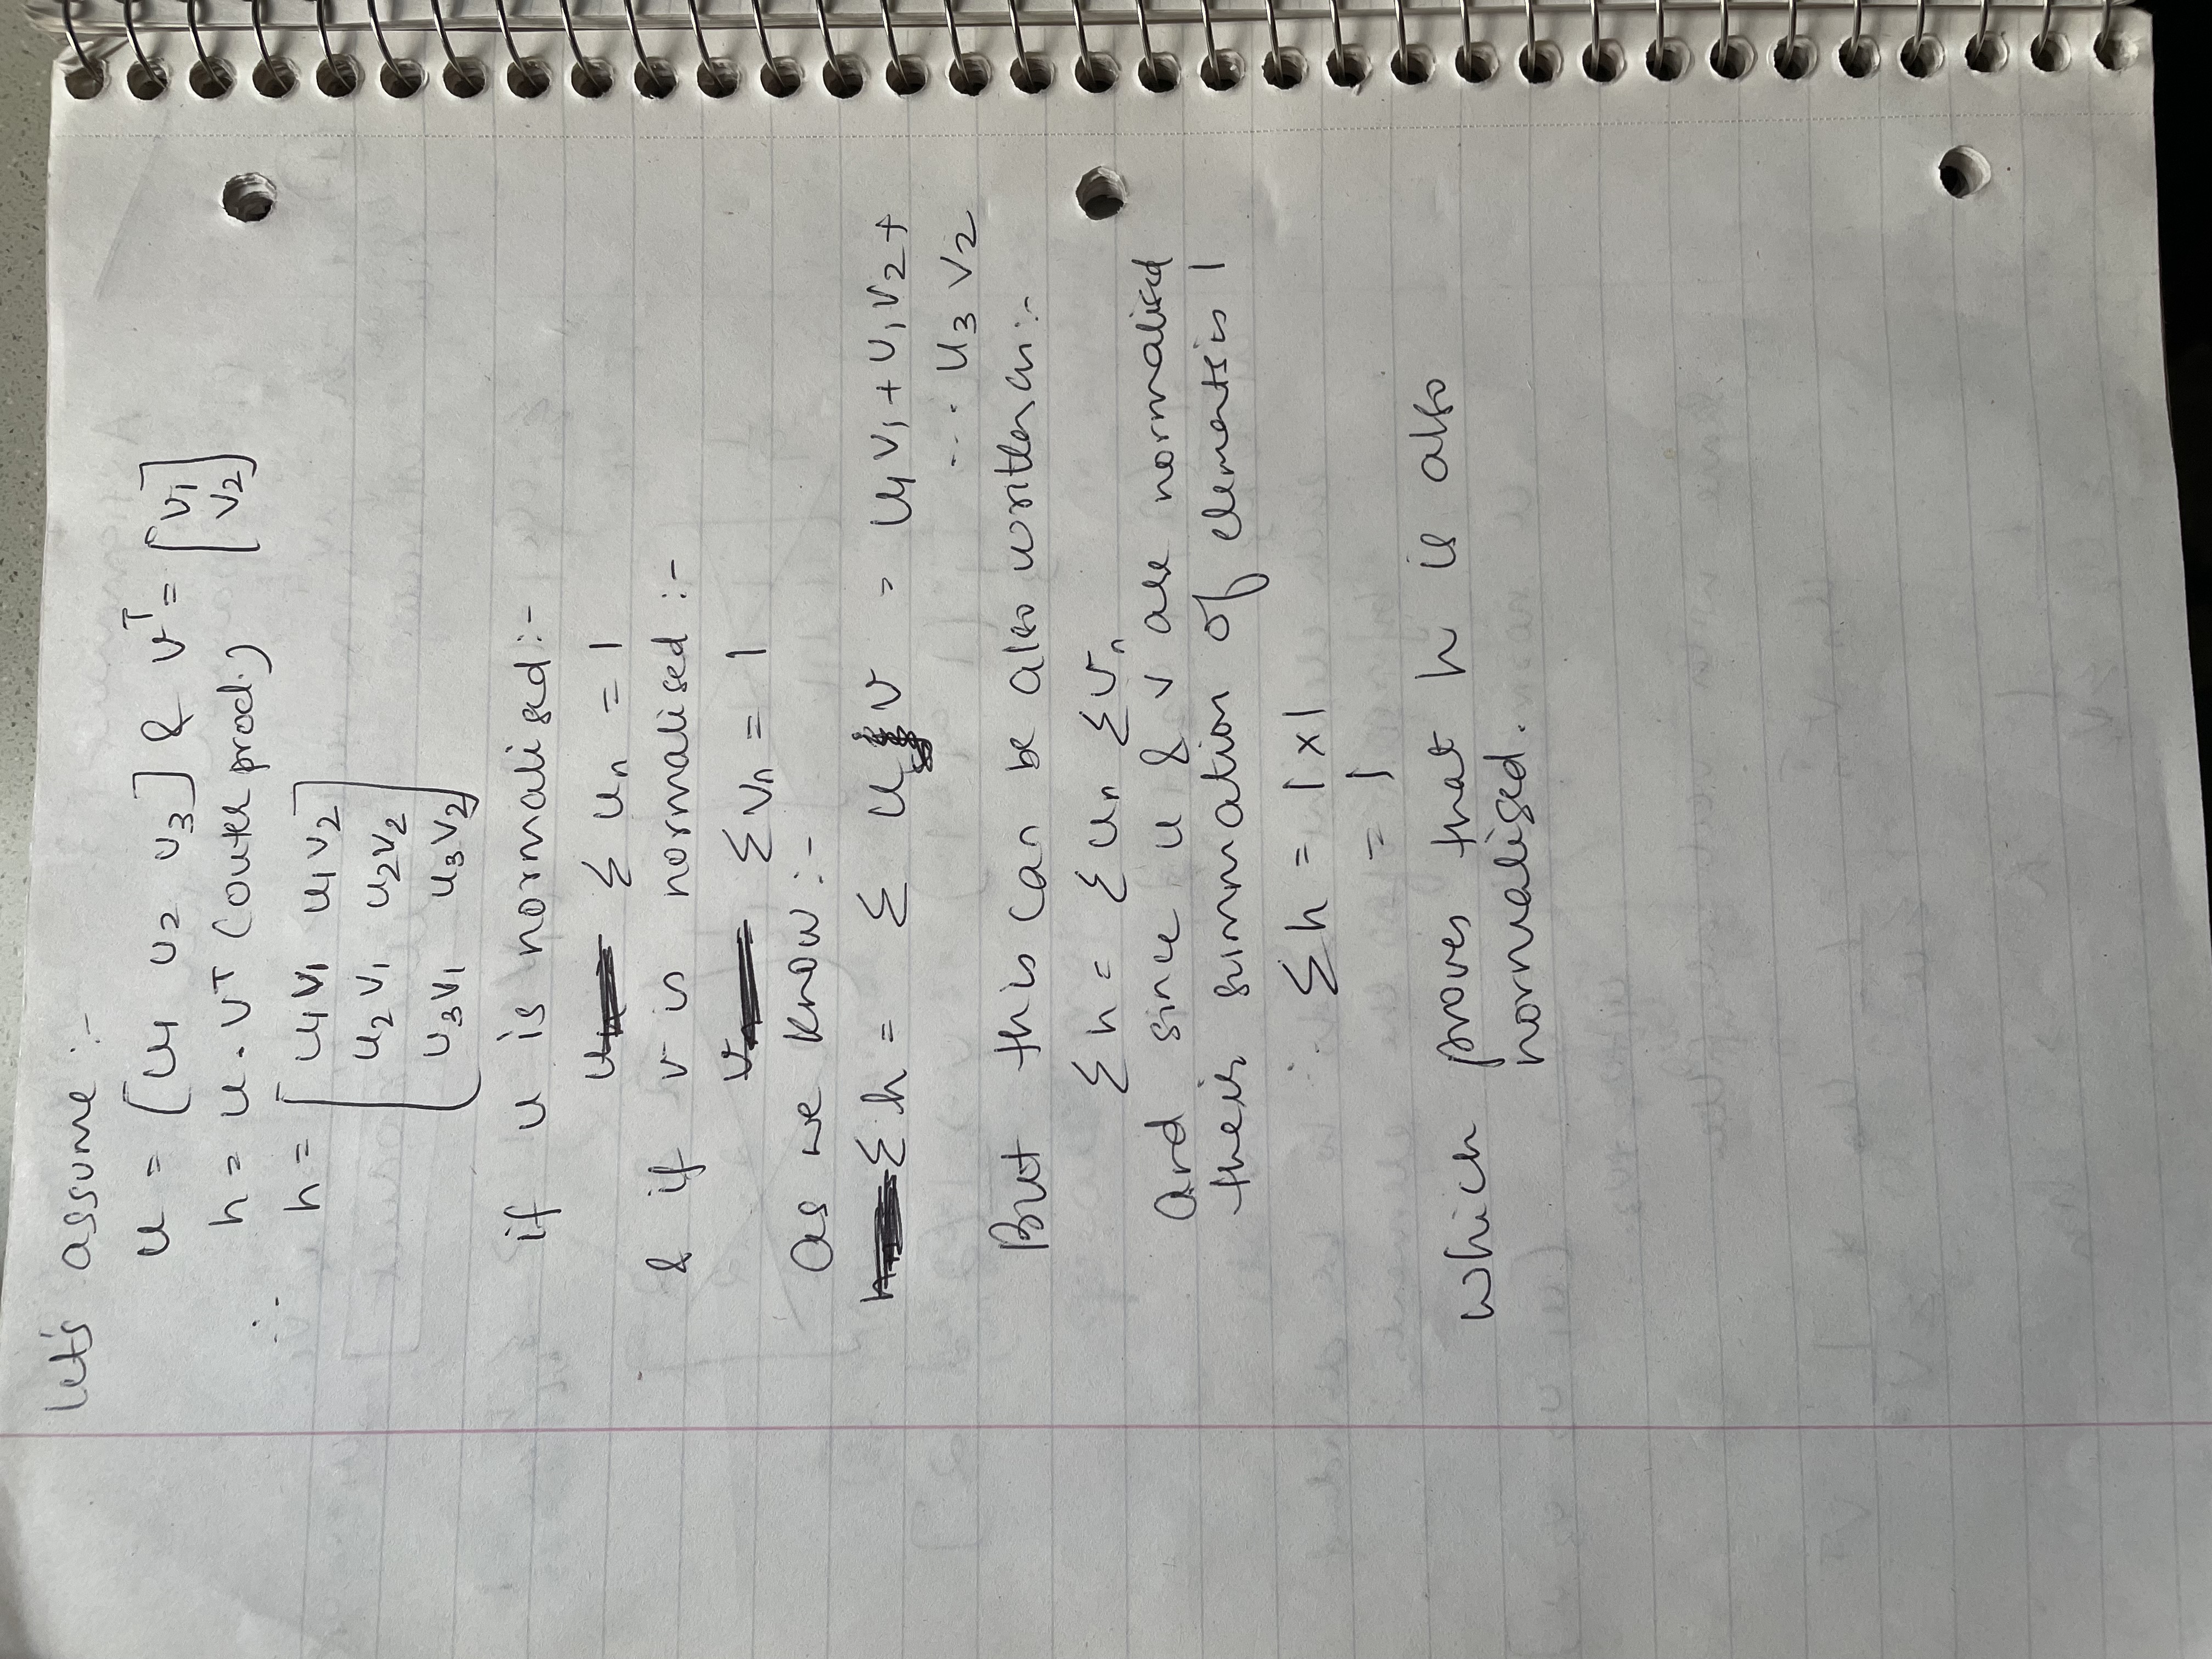 let's assume :-
u = [u1 u2 u3] & v^T = [v1
v2]
h = u . v^T (outer prod.)
∴ h = [u1v1 u1v2
u2v1 u2v2
u3v1 u3v2]
if u is normalised :-
Σ un = 1
& if v is normalised :-
Σ vn = 1
as we know :-
Σ h = Σ u v = u1v1 + u1v2 +
... u3 v2
But this can be also written as :-
Σ h = Σ un Σ vn
And since u & v are normalised
their summation of elements is 1
∴ Σ h = 1 x 1
= 1
which proves that h is also
normalised.